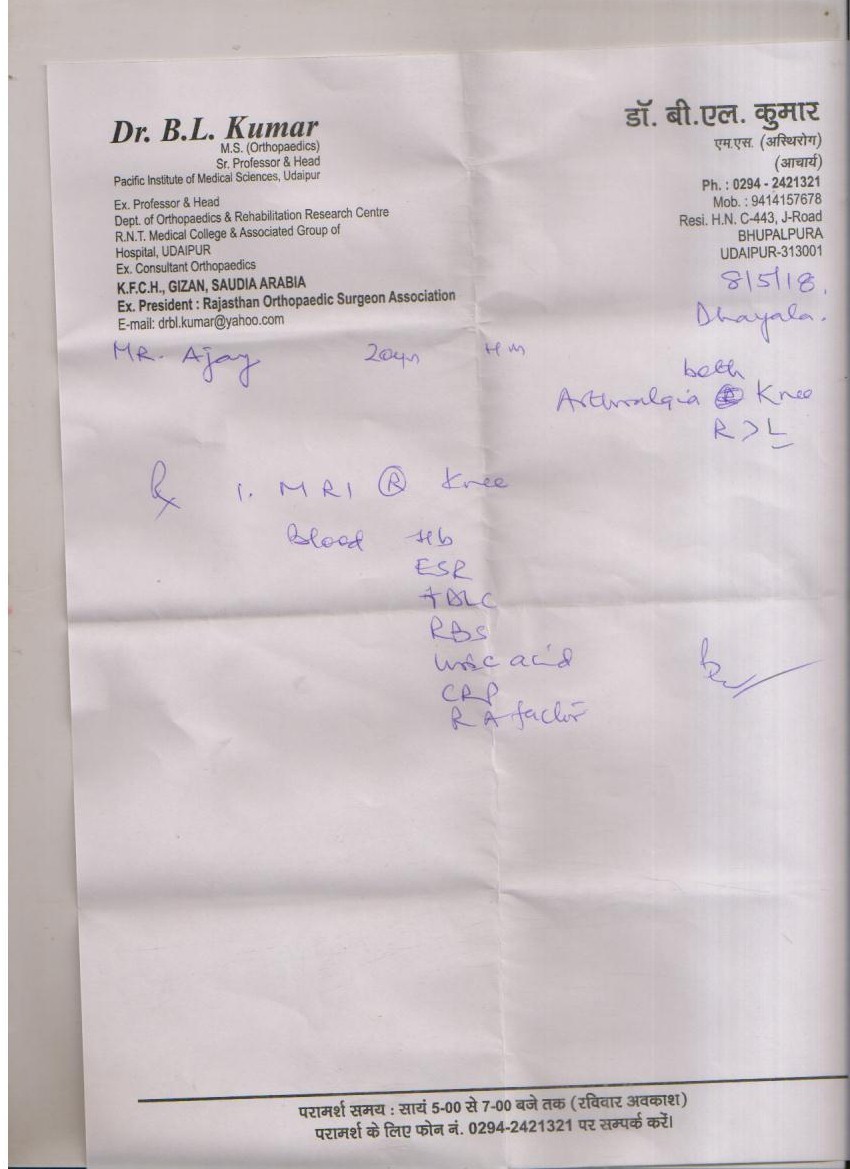 Dr. B.L. Kumar
M.S. (Orthopaedics)
Sr. Professor & Head
Pacific Institute of Medical Sciences, Udaipur
Ex. Professor & Head
Dept. of Orthopaedics & Rehabilitation Research Centre
R.N.T. Medical College & Associated Group of
Hospital, UDAIPUR
Ex. Consultant Orthopaedics
K.F.C.H., GIZAN, SAUDIA ARABIA
Ex. President : Rajasthan Orthopaedic Surgeon Association
E-mail: drbl.kumar@yahoo.com
डॉ. बी.एल. कुमार
एम.एस. (अस्थिरोग)
(आचार्य)
Ph. : 0294 - 2421321
Mob. : 9414157678
Resi. H.N. C-443, J-Road
BHUPALPURA
UDAIPUR-313001
8/5/18.
Dhayala.
MR. Ajay 20yrs
both
Arthralgia Knee
R > L
Rx 1. MRI Ⓡ Knee
Blood Hb
ESR
TDLC
RBS
Uric acid
CRP
R A factor
परामर्श समय : सायं 5-00 से 7-00 बजे तक (रविवार अवकाश)
परामर्श के लिए फोन नं. 0294-2421321 पर सम्पर्क करें।